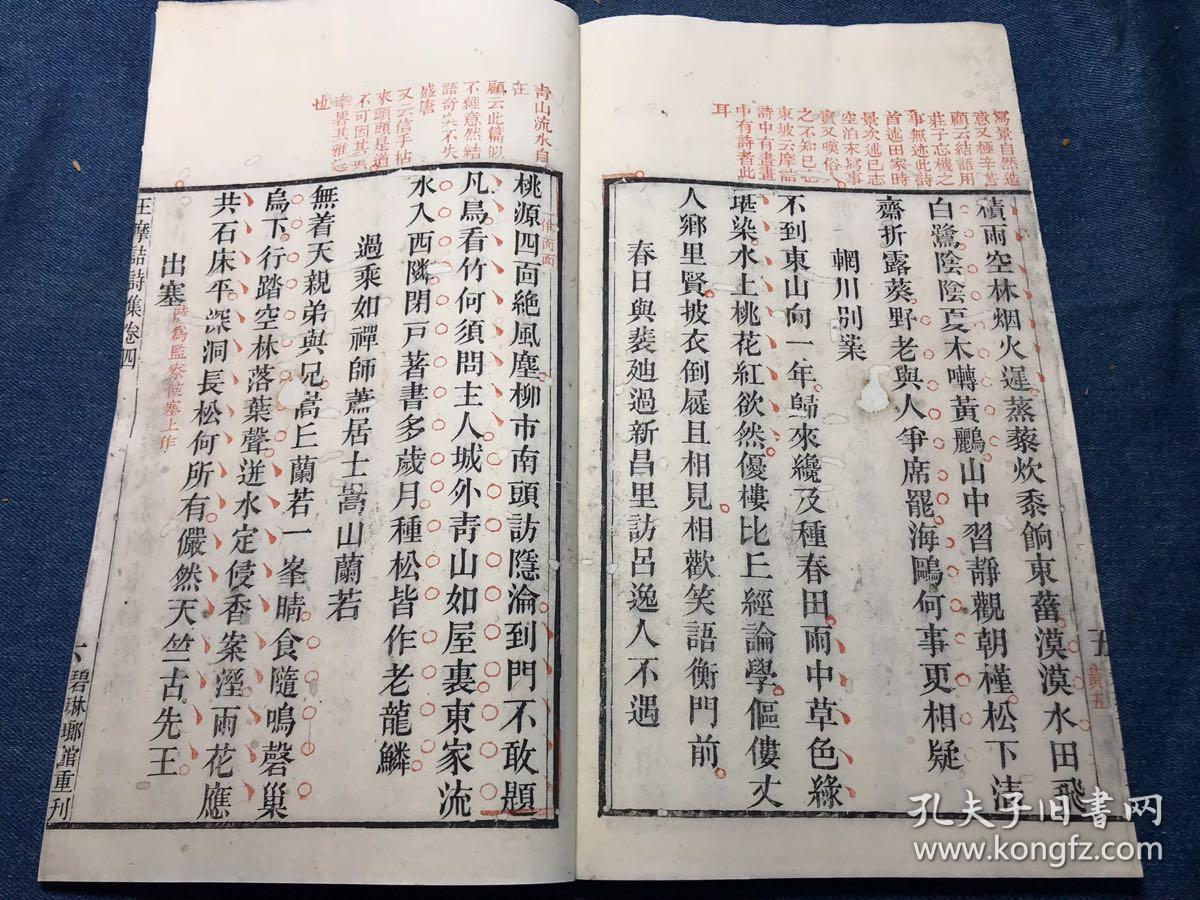 寫景自然造
意又極辛苦
顧云結語用
莊子忘機之
事無迹此詩
首述田家時
景次述已志
空泊末寫事
實又嘆俗人
之不知已也
東坡云摩詰
詩中有畫畫
中有詩者此
耳
積雨空林烟火遲蒸藜炊黍餉東菑漠漠水田飛
白鷺陰陰夏木囀黃鸝山中習靜觀朝槿松下清
齋折露葵野老與人爭席罷海鷗何事更相疑
輞川別業
不到東山向一年歸來纔及種春田雨中草色綠
堪染水上桃花紅欲然優樓比丘經論學傴僂丈
人鄉里賢披衣倒屣且相見相歡笑語衡門前
春日與裴廸過新昌里訪呂逸人不遇
五
黃五
青山流水自
在
顧云此篇似
不經意然結
語奇突不失
盛唐
又云信手拈
來頭頭是道
不可因其
率畧其雅
也
桃源四面絶風塵柳市南頭訪隱淪到門不敢題
一作面面
凡鳥看竹何須問主人城外靑山如屋裏東家流
水入西隣閉戸著書多歲月種松皆作老龍鱗
過乘如禪師蕭居士嵩山蘭若
無着天親弟與兄嵩丘蘭若一峯晴食隨鳴磬巢
烏下行踏空林落葉聲迸水定侵香案溼雨花應
共石床平深洞長松何所有儼然天竺古先王
出塞時爲監察使塞上作
王摩詰詩集卷四
六
碧琳瑯館重刊
孔夫子旧书网
www.kongfz.com